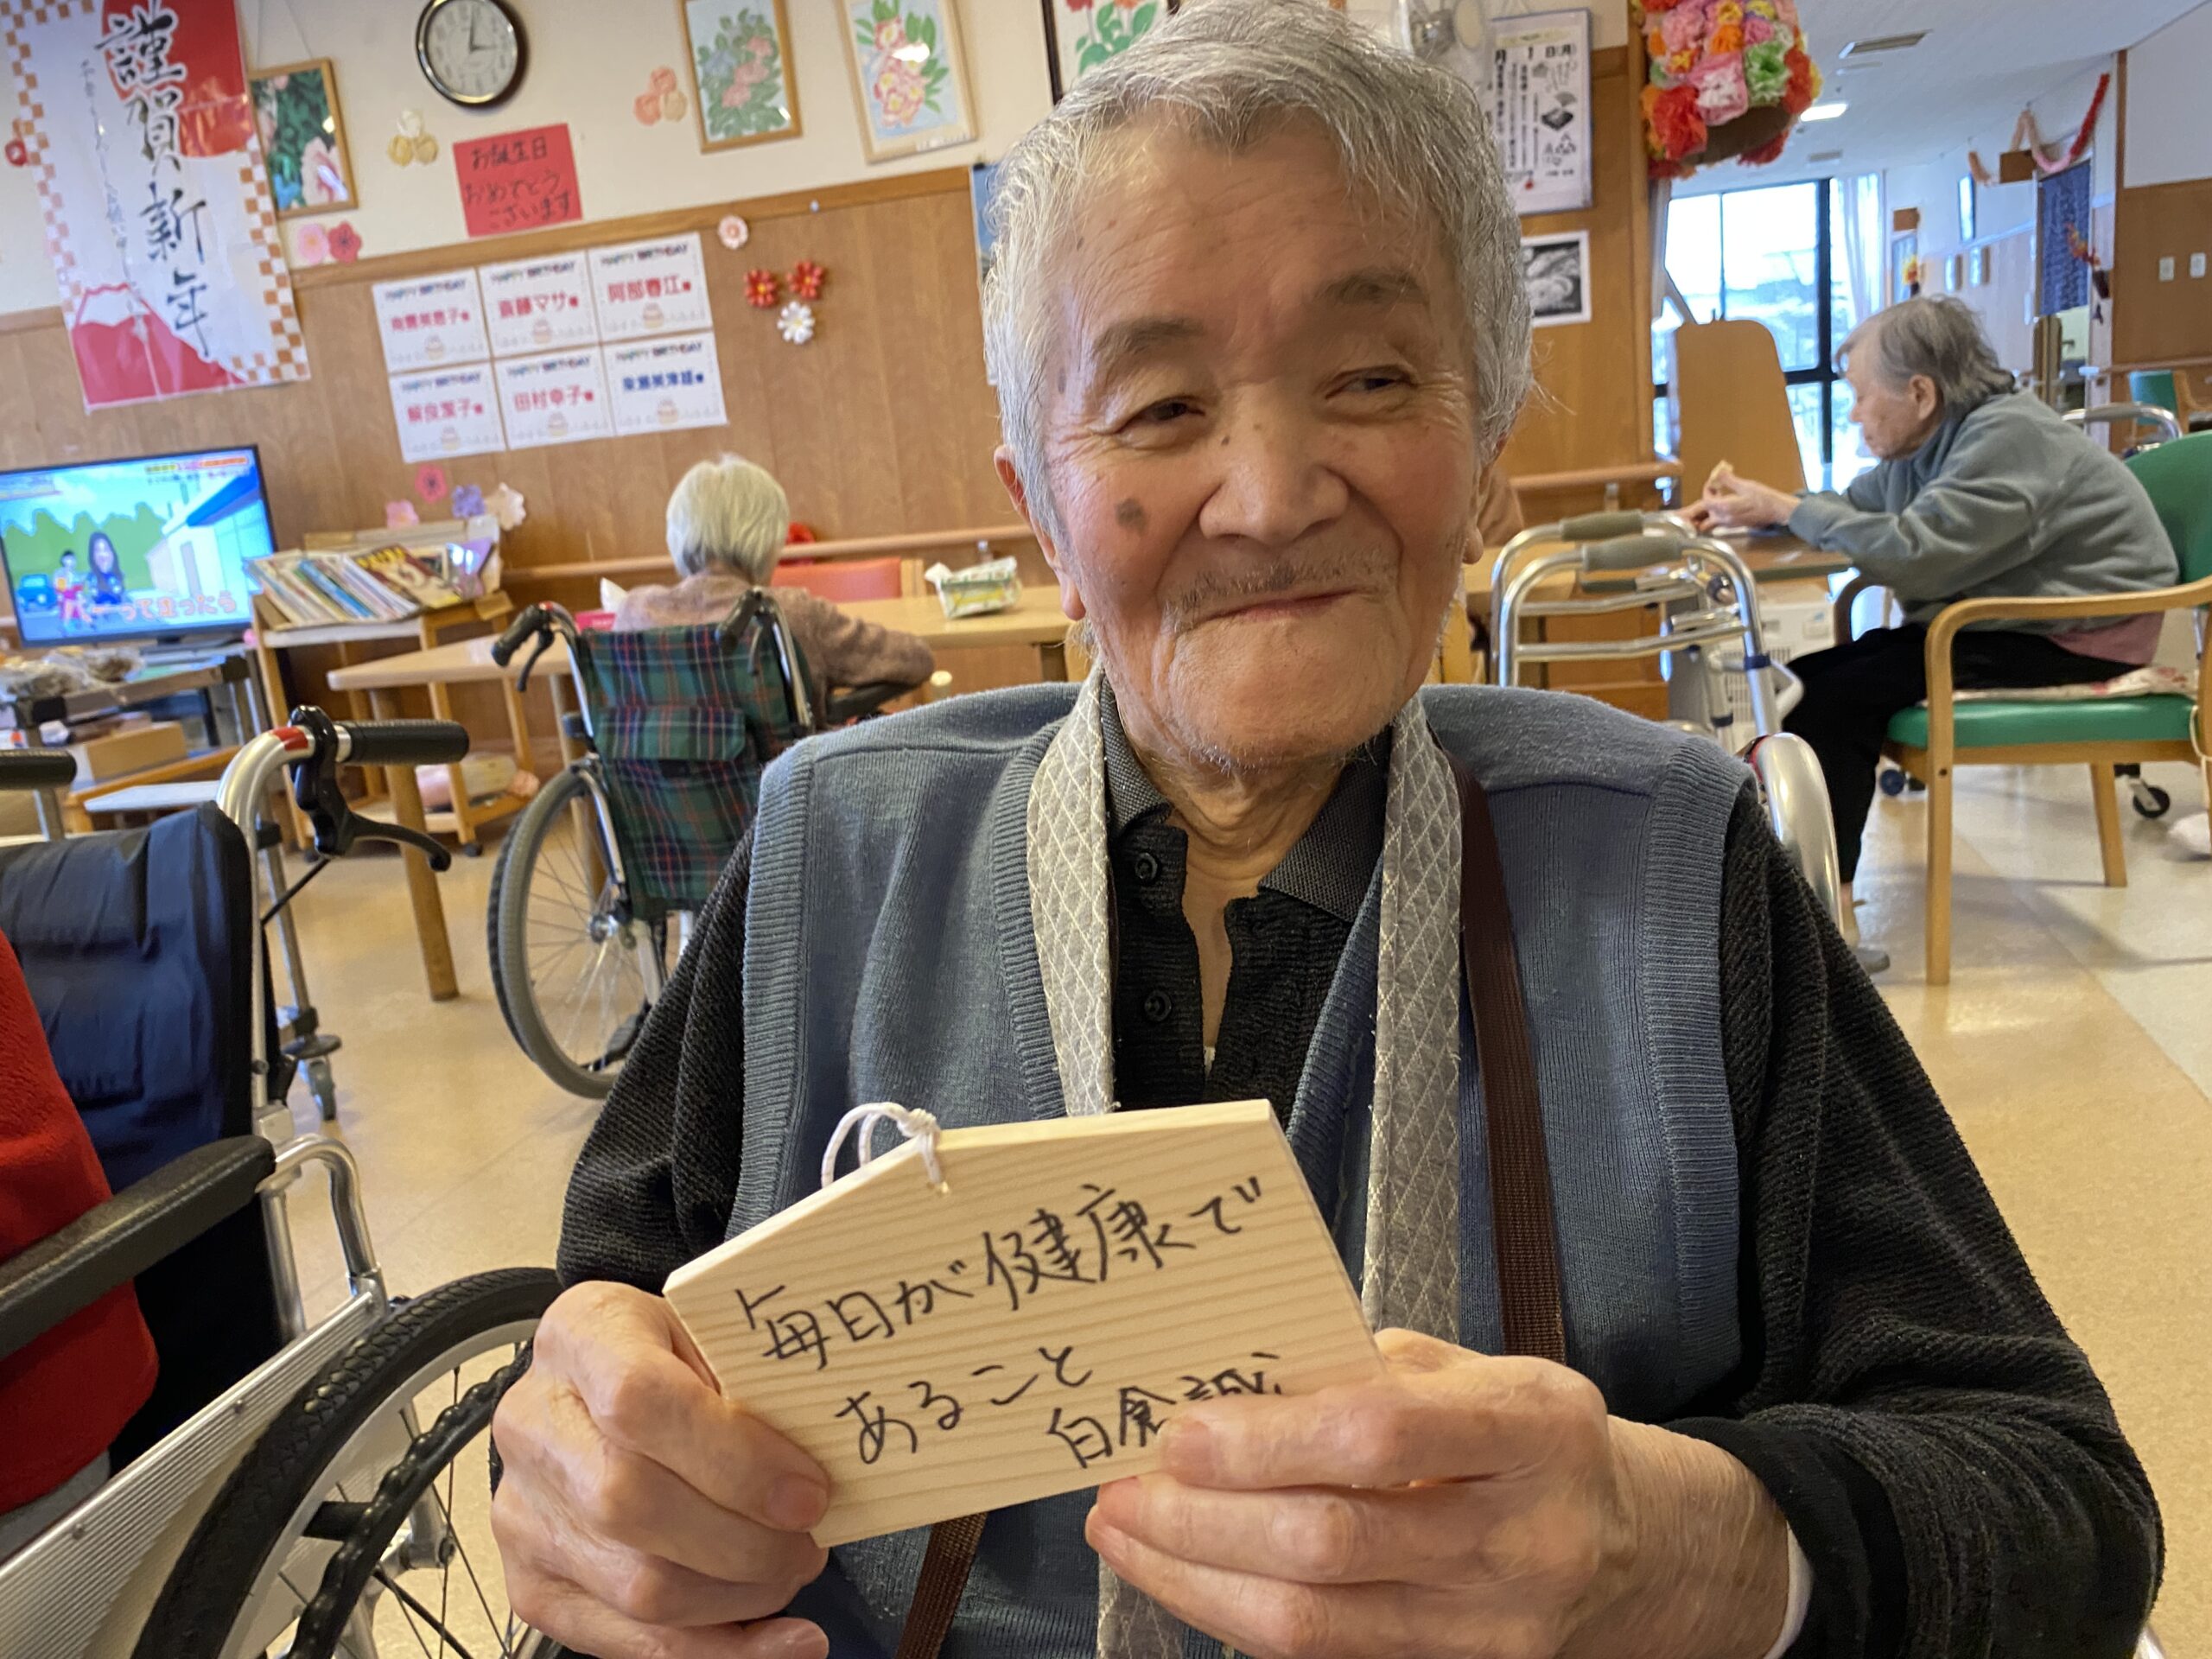 謹賀新年
お誕生日
おめでとう
ございます
HAPPY BIRTHDAY
HAPPY BIRTHDAY
斎藤マサ様
HAPPY BIRTHDAY
阿部春江様
HAPPY BIRTHDAY
HAPPY BIRTHDAY
田村幸子様
HAPPY BIRTHDAY
月1日(月)
やって違ったら
毎日が健康で
あること
白倉誠